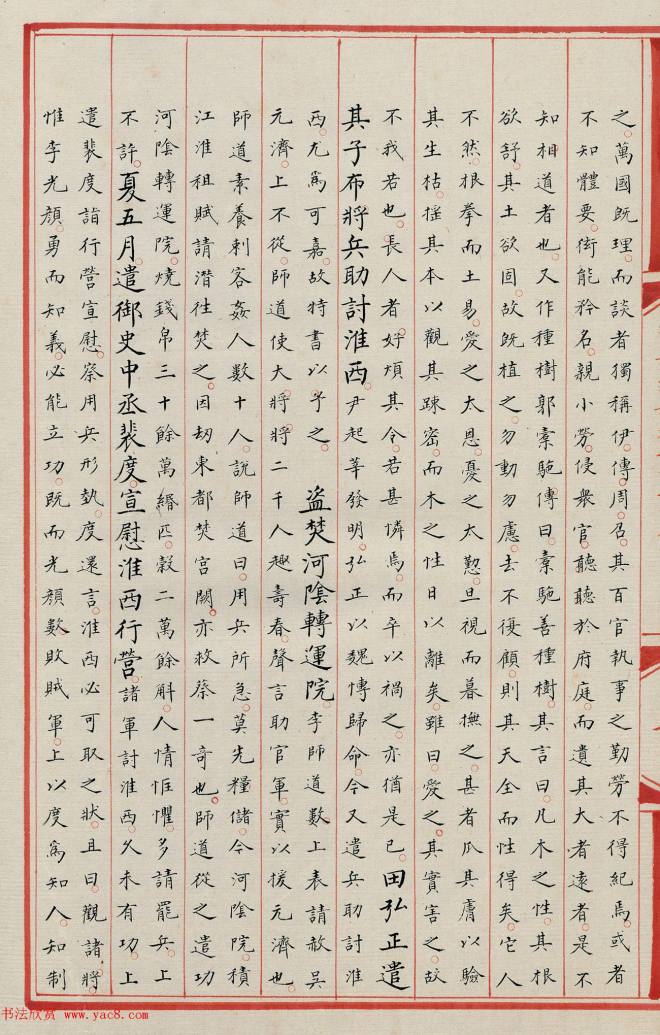 之萬國既理而談者獨稱伊傅周召其百官執事之勤勞不得紀焉或者
不知體要衒能矜名親小勞侵衆官聽聽於府庭而遺其大者遠者是不
知相道者也又作種樹郭橐駞傳曰橐駞善種樹其言曰凡木之性其根
欲舒其土欲固故既植之勿動勿慮去不復顧則其天全而性得矣它人
不然根拳而土易愛之太恩憂之太懃旦視而暮撫之甚者爪其膚以驗
其生枯搖其本以觀其踈密而木之性日以離矣雖曰愛之其實害之故
不我若也長人者好煩其令若甚憐焉而卒以禍之亦猶是已田弘正遣
其子布將兵助討淮西尹起莘發明弘正以魏博歸命今又遣兵助討淮
西尤爲可嘉故特書以予之盜焚河陰轉運院李師道數上表請赦吳
元濟上不從師道使大將將二千人趣壽春聲言助官軍實以援元濟也
師道素養刺客姦人數十人說師道曰用兵所急莫先糧儲今河陰院積
江淮租賦請潛往焚之因刼東都焚宮闕亦救蔡一奇也師道從之遣攻
河陰轉運院燒錢帛三十餘萬緡匹穀二萬餘斛人情恇懼多請罷兵上
不許夏五月遣御史中丞裴度宣慰淮西行營諸軍討淮西久未有功上
遣裴度詣行營宣慰察用兵形勢度還言淮西必可取之狀且曰觀諸將
惟李光顏勇而知義必能立功既而光顏數敗賊軍上以度爲知人知制
书法欣赏 www.yac8.com